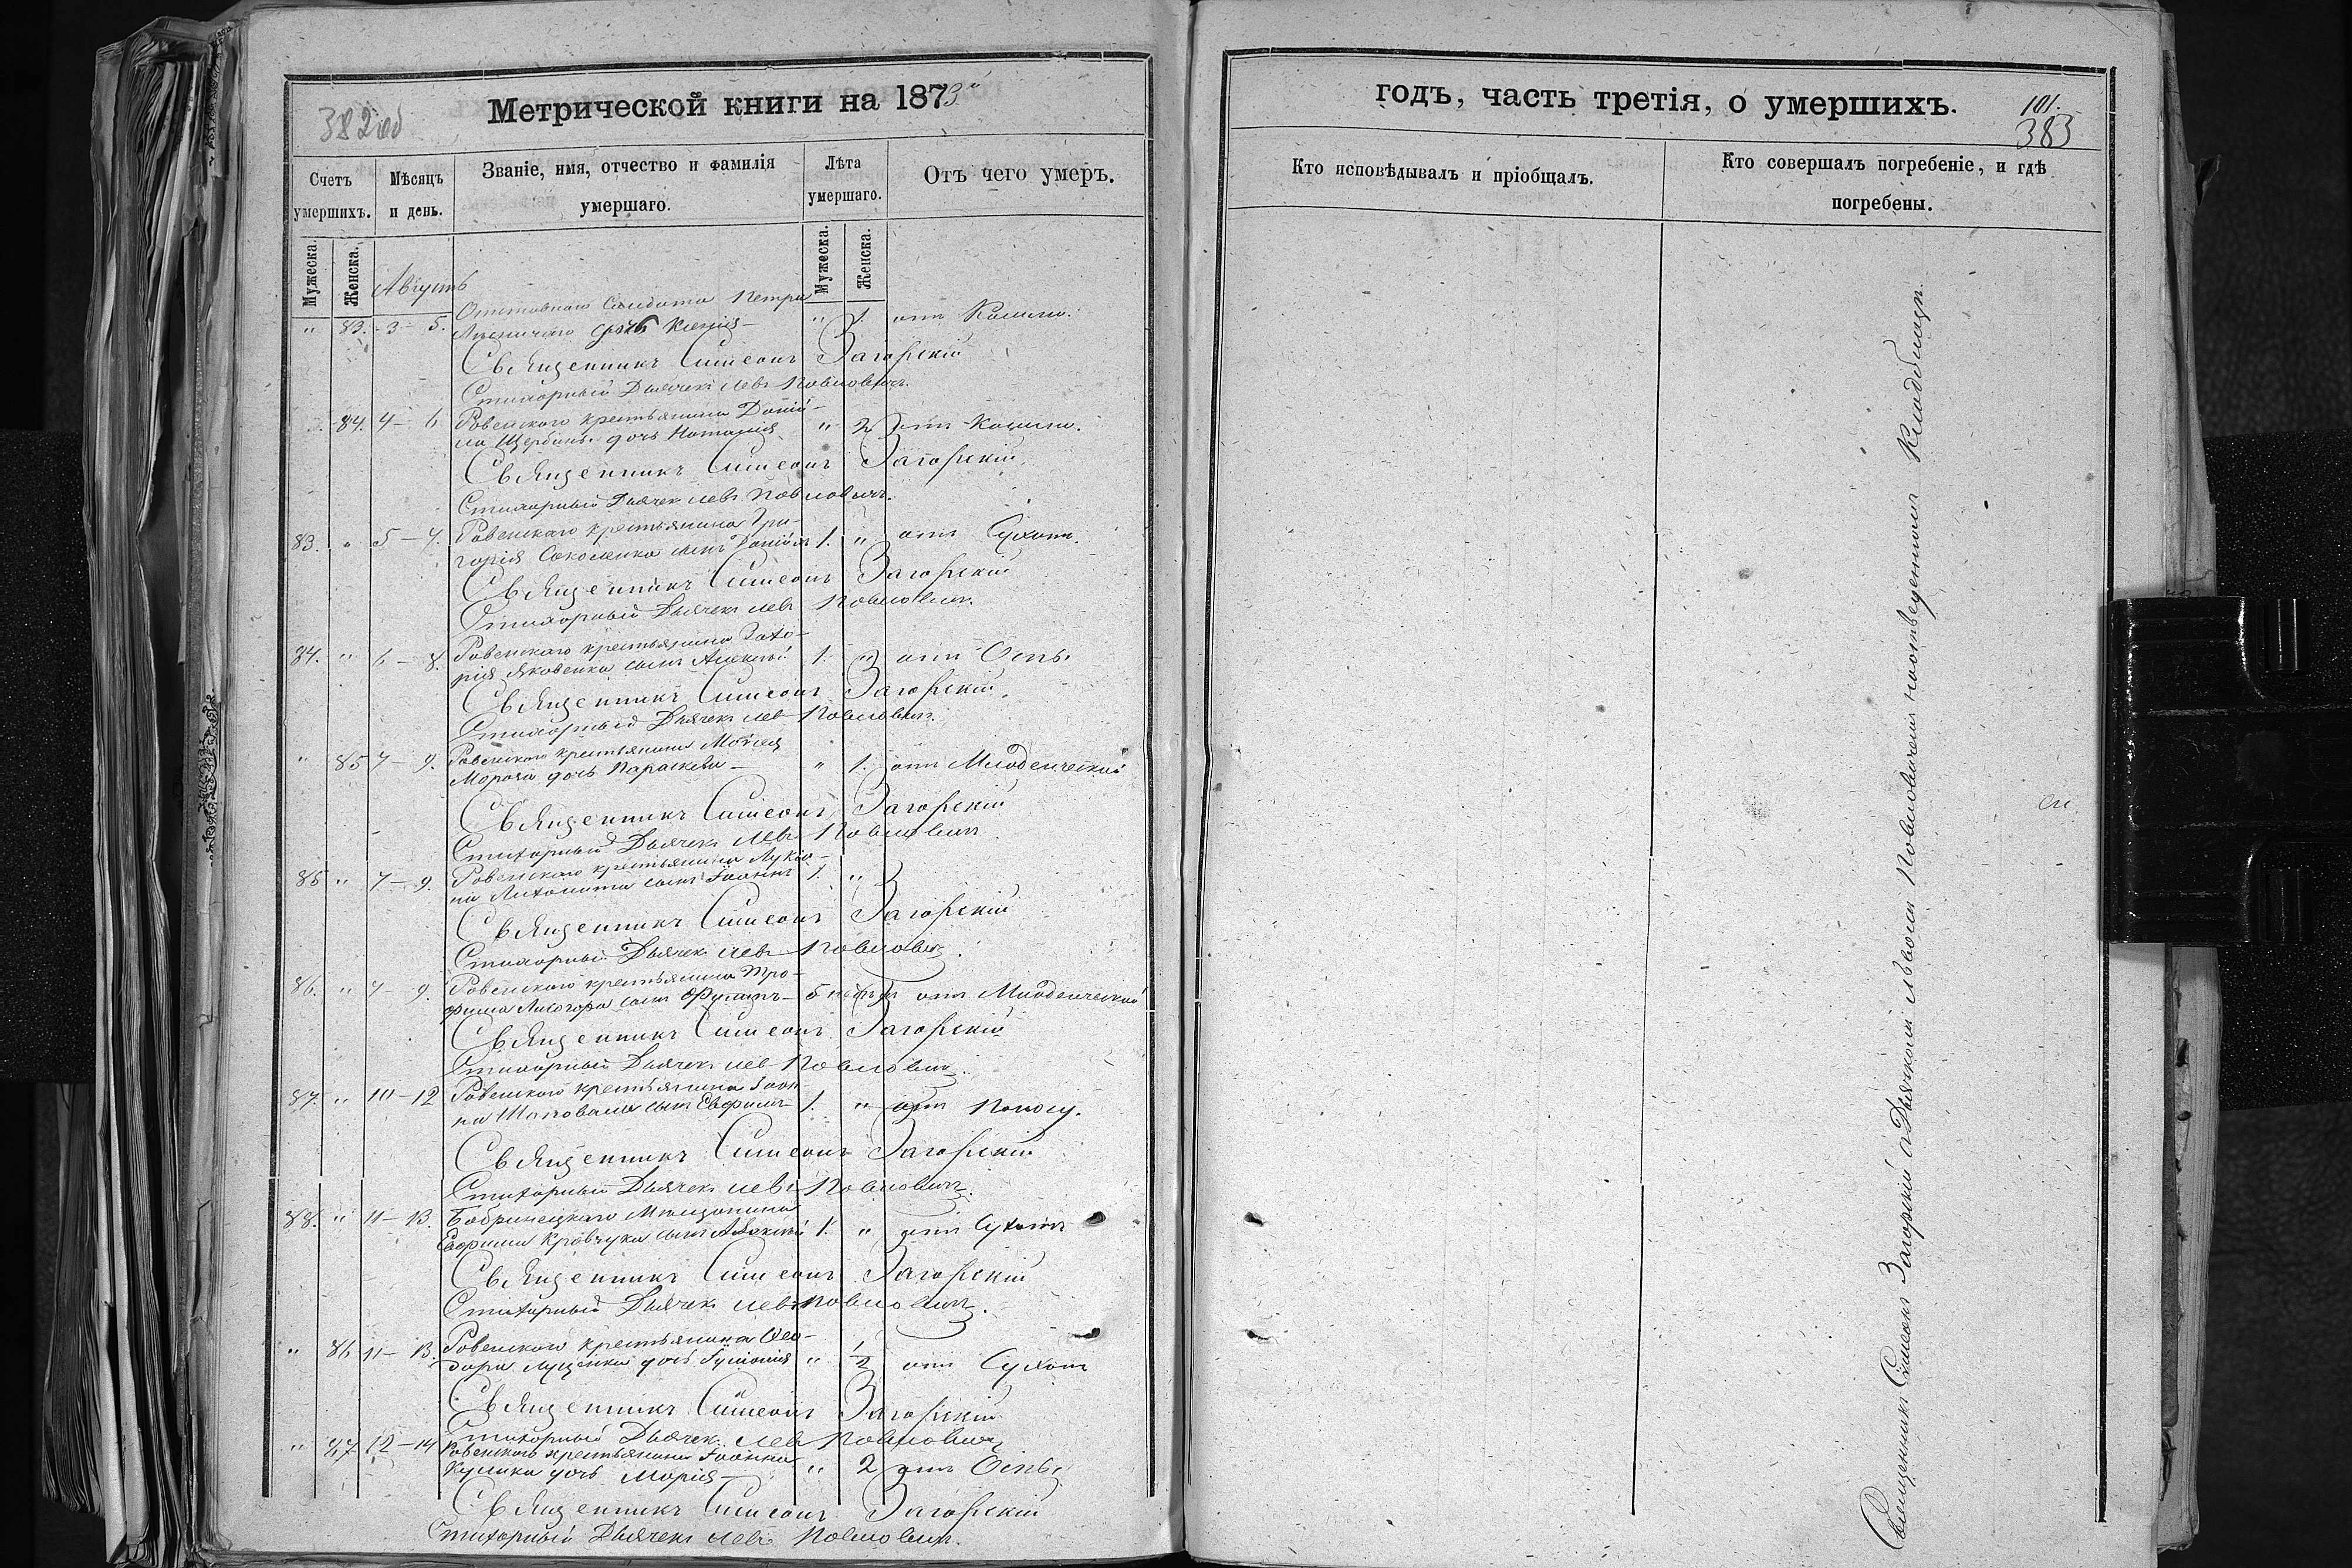 382 об
Метрической книги на 1873й
Счетъ умершихъ.
Мѣсяцъ и день.
Званіе, имя, отчество и фамилія умершаго.
Лѣта умершаго.
Отъ чего умеръ.
Мужеска.
Женска.
Мужеска.
Женска.
Августъ
Отставного Солдата Петра
" 83. 3 - 5. дочь Ксенія - " 1. отъ Кашлю.
Священникъ Симеонъ Загорскій
Стихарный Дьячек Левъ Павловичъ.
84. 4 - 6 Ровенского крестьянина Даніи-
ла Щербины дочь Наталія " 2 отъ Кашлю.
Священникъ Симеонъ Загорскій
Стихарный Дьячек Левъ Павловичъ.
83. " 5 - 7. Ровенскаго крестьянина Гри-
горія Соколенка сынъ Даніилъ 1. " отъ Сухот.
Священникъ Симеонъ Загорскій
Стихарный Дьячек Левъ Павловичъ.
84. " 6 - 8. Ровенскаго крестьянина Заха-
рія Яковенка сынъ Алексѣй 1. " отъ Оспы.
Священникъ Симеонъ Загорскій.
Стихарный Дьячек Левъ Павловичъ.
" 85 7 - 9. Ровенского крестьянина Моисея
Мороза дочь Параскева - " 1. отъ Младенческой
Священникъ Симеонъ Загорскій
Стихарный Дьячек Левъ Павловичъ.
85 " 7 - 9. Ровенского крестьянина Лукіа-
на сынъ Іоаннъ 1. "
Священникъ Симеонъ Загорскій
Стихарный Дьячек Левъ Павловичъ.
86. " 7 - 9. Ровенского крестьянина Тро-
фима Лисогора сынъ - 5 отъ Младенческой
Священникъ Симеонъ Загорскій
Стихарный Дьячек Левъ Павловичъ.
87. " 10 - 12 Ровенского крестьянина Іоан-
на Шаповала сынъ Евфимъ 1. " отъ Поносу.
Священникъ Симеонъ Загорскій
Стихарный Дьячек Левъ Павловичъ.
88. " 11 - 13. Бобринецкаго Мѣщанина
Евфима Кравчука сынъ Алексѣй 1. " отъ Сухотъ
Священникъ Симеонъ Загорскій
Стихарный Дьячек Левъ Павловичъ.
" 86 11 - 13 Ровенского крестьянина Ѳео-
дора Луценка дочь Іуліанія " 1/2 отъ Сухот
Священникъ Симеонъ Загорскій
Стихарный Дьячек Левъ Павловичъ
" 87 12 - 14 Ровенского крестьянина Іоанна
Кулика дочь Марія - " 2 отъ Оспы.
Священникъ Симеонъ Загорскій
Стихарный Дьячек Левъ Павловичъ.
годъ, часть третія, о умершихъ.
101.
383
Кто исповѣдывалъ и пріобщалъ.
Кто совершалъ погребеніе, и гдѣ погребены.
Священникъ Симеонъ Загорскій с Дьячкомъ Львомъ Павловичемъ на отведенномъ Кладбищѣ.